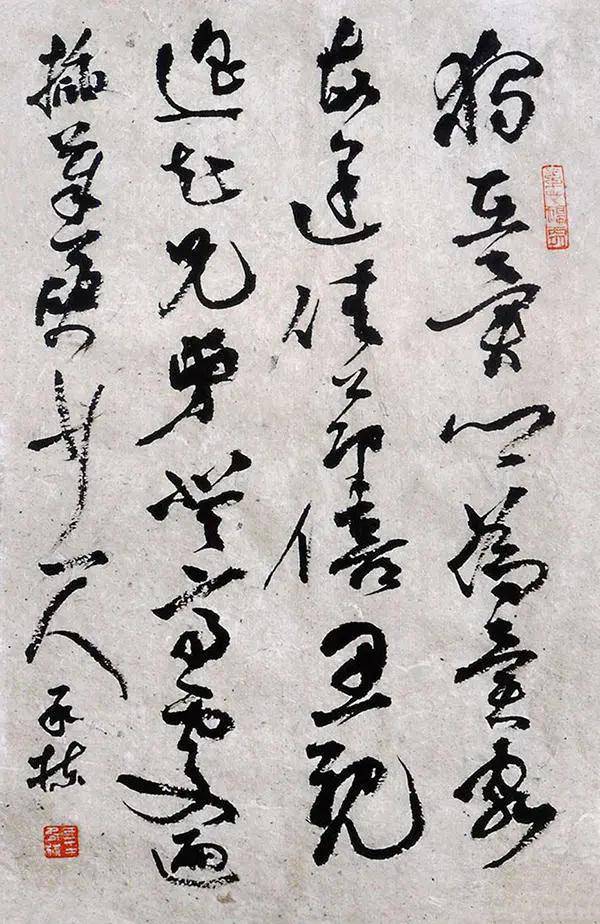 獨在異鄉為異客
每逢佳節倍思親
遙知兄弟登高處遍
插茱萸少一人